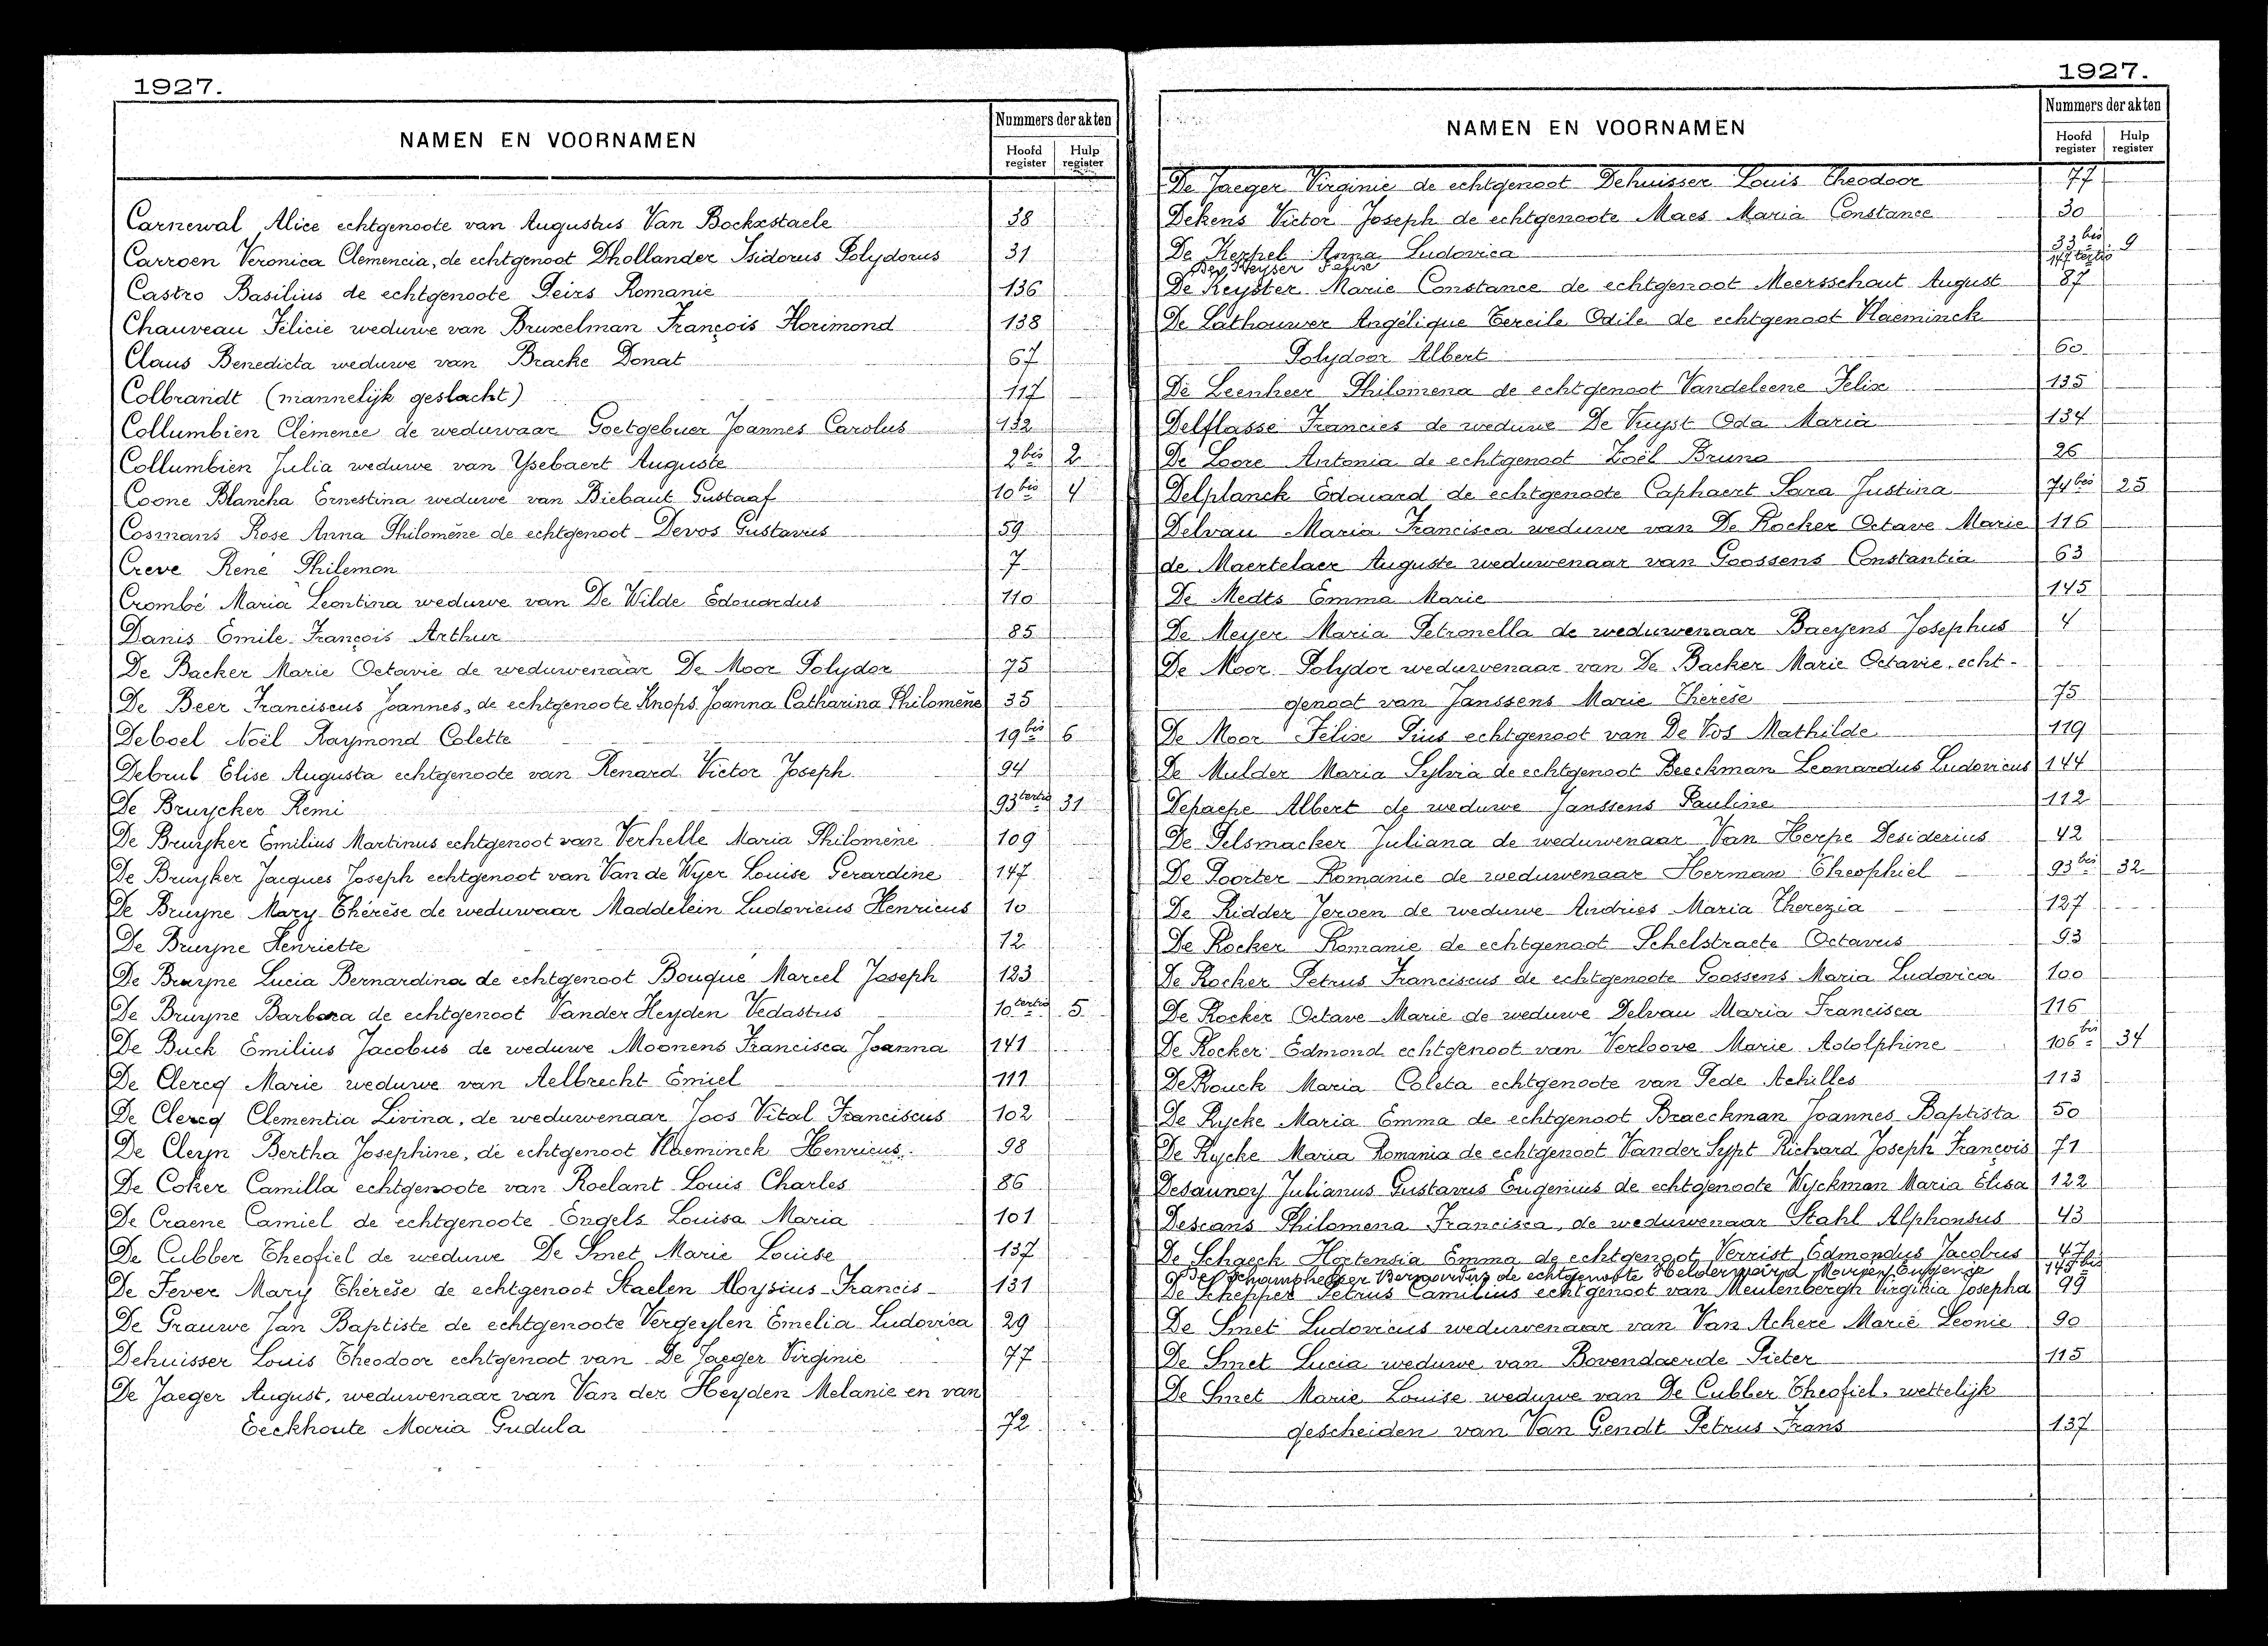 1927.
NAMEN EN VOORNAMEN
Nummers der akten
Hoofd register
Hulp register
Carnewal Alice echtgenoote van Augustus Van Bockxstaele 38
Carroen Veronica Clemencia, de echtgenoot Dhollander Isidorus Polydorus 31
Castro Basilius de echtgenoote Peirs Romanie 136
Chauveau Felicie weduwe van Bruxelman François Florimond 138
Claus Benedicta weduwe van Bracke Donat 67
Colbrandt (mannelijk geslacht) 117
Collumbien Clémence de weduwaar Goetgebuer Joannes Carolus 132
Collumbien Julia weduwe van Ysebaert Auguste 2bis 2
Coone Blancha Ernestina weduwe van Biebaut Gustaaf 10bis 4
Cosmans Rose Anna Philomène de echtgenoot Devos Gustavus 59
Creve René Philemon 7
Crombé Maria Leontina weduwe van De Wilde Edouardus 110
Danis Emile François Arthur 85
De Backer Marie Octavie de weduwenaar De Moor Polydor 75
De Beer Franciscus Joannes, de echtgenoote Knops Joanna Catharina Philomène 35
Deboel Noël Raymond Colette 19bis 6
Debrul Elise Augusta echtgenoote van Renard Victor Joseph 94
De Bruycker Remi 93tertio 31
De Bruyker Emilius Martinus echtgenoot van Verhelle Maria Philomène 109
De Bruyker Jacques Joseph echtgenoot van Van de Wyer Louise Gerardine 147
De Bruyne Mary Thérèse de weduwaar Maddelein Ludovicus Henricus 10
De Bruyne Henriette 12
De Bruyne Lucia Bernardina de echtgenoot Bouqué Marcel Joseph 123
De Bruyne Barbara de echtgenoot Vander Heyden Vedastus 10tertio 5
De Buck Emilius Jacobus de weduwe Moonens Francisca Joanna 141
De Clercq Marie weduwe van Aelbrecht Emiel 111
De Clercq Clementia Livina, de weduwenaar Joos Vital Franciscus 102
De Cleyn Bertha Josephine, de echtgenoot Haeminck Henricus. 98
De Coker Camilla echtgenoote van Roelant Louis Charles 86
De Craene Camiel de echtgenoote Engels Louisa Maria 101
De Cubber Theofiel de weduwe De Smet Marie Louise 137
De Fever Mary Thérèse de echtgenoot Staelen Aloysius-Francis 131
De Grauwe Jan Baptiste de echtgenoote Vergeylen Emelia Ludovica 29
Dehuisser Louis Theodoor echtgenoot van De Jaeger Virginie 77
De Jaeger August, weduwenaar van Van der Heyden Melanie en van
Eeckhoute Maria Gudula 72
1927.
NAMEN EN VOORNAMEN
Nummers der akten
Hoofd register
Hulp register
De Jaeger Virginie de echtgenoot Dehuisser Louis Theodoor 77
Dekens Victor Joseph de echtgenoote Maes Maria Constance 30
De Kerpel Anna Ludovica 33bis 9
De Keyser
De Keyster Marie Constance de echtgenoot Meersschaut August 87
De Lathouwer Angélique Cereile Odile de echtgenoot Haeminck
Polydoor Albert 60
De Leenheer Philomena de echtgenoot Vandeleene Felix 135
Delflasse Francies de weduwe De Vuyst Oda Maria 134
De Loore Antonia de echtgenoot Zoël Bruno 26
Delplanck Edouard de echtgenoote Caphaert Sara Justina 74bis 25
Delvau Maria Francisca weduwe van De Rocker Octave Marie 116
de Maertelaer Auguste weduwenaar van Goossens Constantia 63
De Medts Emma Marie 145
De Meyer Maria Petronella de weduwenaar Baeyens Josephus 4
De Moor Polydor weduwenaar van De Backer Marie Octavie, echt-
genoot van Janssens Marie Thérèse 75
De Moor Felix Pius echtgenoot van De Vos Mathilde 119
De Mulder Maria Sylvia de echtgenoot Beeckman Leonardus Ludovicus 144
Depaepe Albert de weduwe Janssens Pauline 112
De Pelsmacker Juliana de weduwenaar Van Herpe Desiderius 42
De Poorter Romanie de weduwenaar Herman Theophiel 93bis 32
De Ridder Jeroen de weduwe Andries Maria Therezia 127
De Rocker Romanie de echtgenoot Schelstraete Octavus 93
De Rocker Petrus Franciscus de echtgenoote Goossens Maria Ludovica 100
De Rocker Octave Marie de weduwe Delvau Maria Francisca 116
De Rocker Edmond echtgenoot van Verloove Marie Adolphine 106bis 34
De Rouck Maria Coleta echtgenoote van Pede Achilles 113
De Rycke Maria Emma de echtgenoot Braeckman Joannes Baptista 50
De Rycke Maria Romania de echtgenoot Vander Sypt Richard Joseph François 71
Desaunoy Julianus Gustavus Eugenius de echtgenoote Wyckman Maria Elisa 122
Descans Philomena Francisca, de weduwenaar Stahl Alphonsus 43
De Schaeck Hortensia Emma de echtgenoot Verrist Edmondus Jacobus 47
De Schamphelaer Bernardus de echtgenoote Helderweird 145bis
De Schepper Petrus Camilius echtgenoot van Meulenbergh Virginia Josepha 99
De Smet Ludovicus weduwenaar van Van Ackere Marie Leonie 90
De Smet Lucia weduwe van Bovendaerde Pieter 115
De Smet Marie Louise weduwe van De Cubber Theofiel, wettelijk
gescheiden van Van Gendt Petrus Frans 137